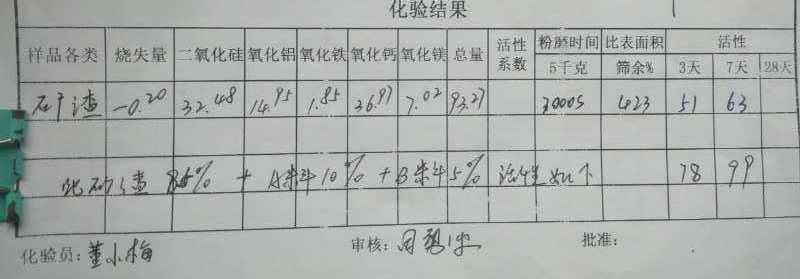 化验结果
样品各类 烧失量 二氧化硅 氧化铝 氧化铁 氧化钙 氧化镁 总量 活性系数 粉磨时间 比表面积 活性
5千克 筛余% 3天 7天 28天
矿渣 -0.20 32.48 14.95 1.85 36.97 7.02 93.27 3000S 423 51 63
此矿渣 85% + A料 10% + B料 5% 活性如下 78 99
化验员: 董小梅 审核: 批准: